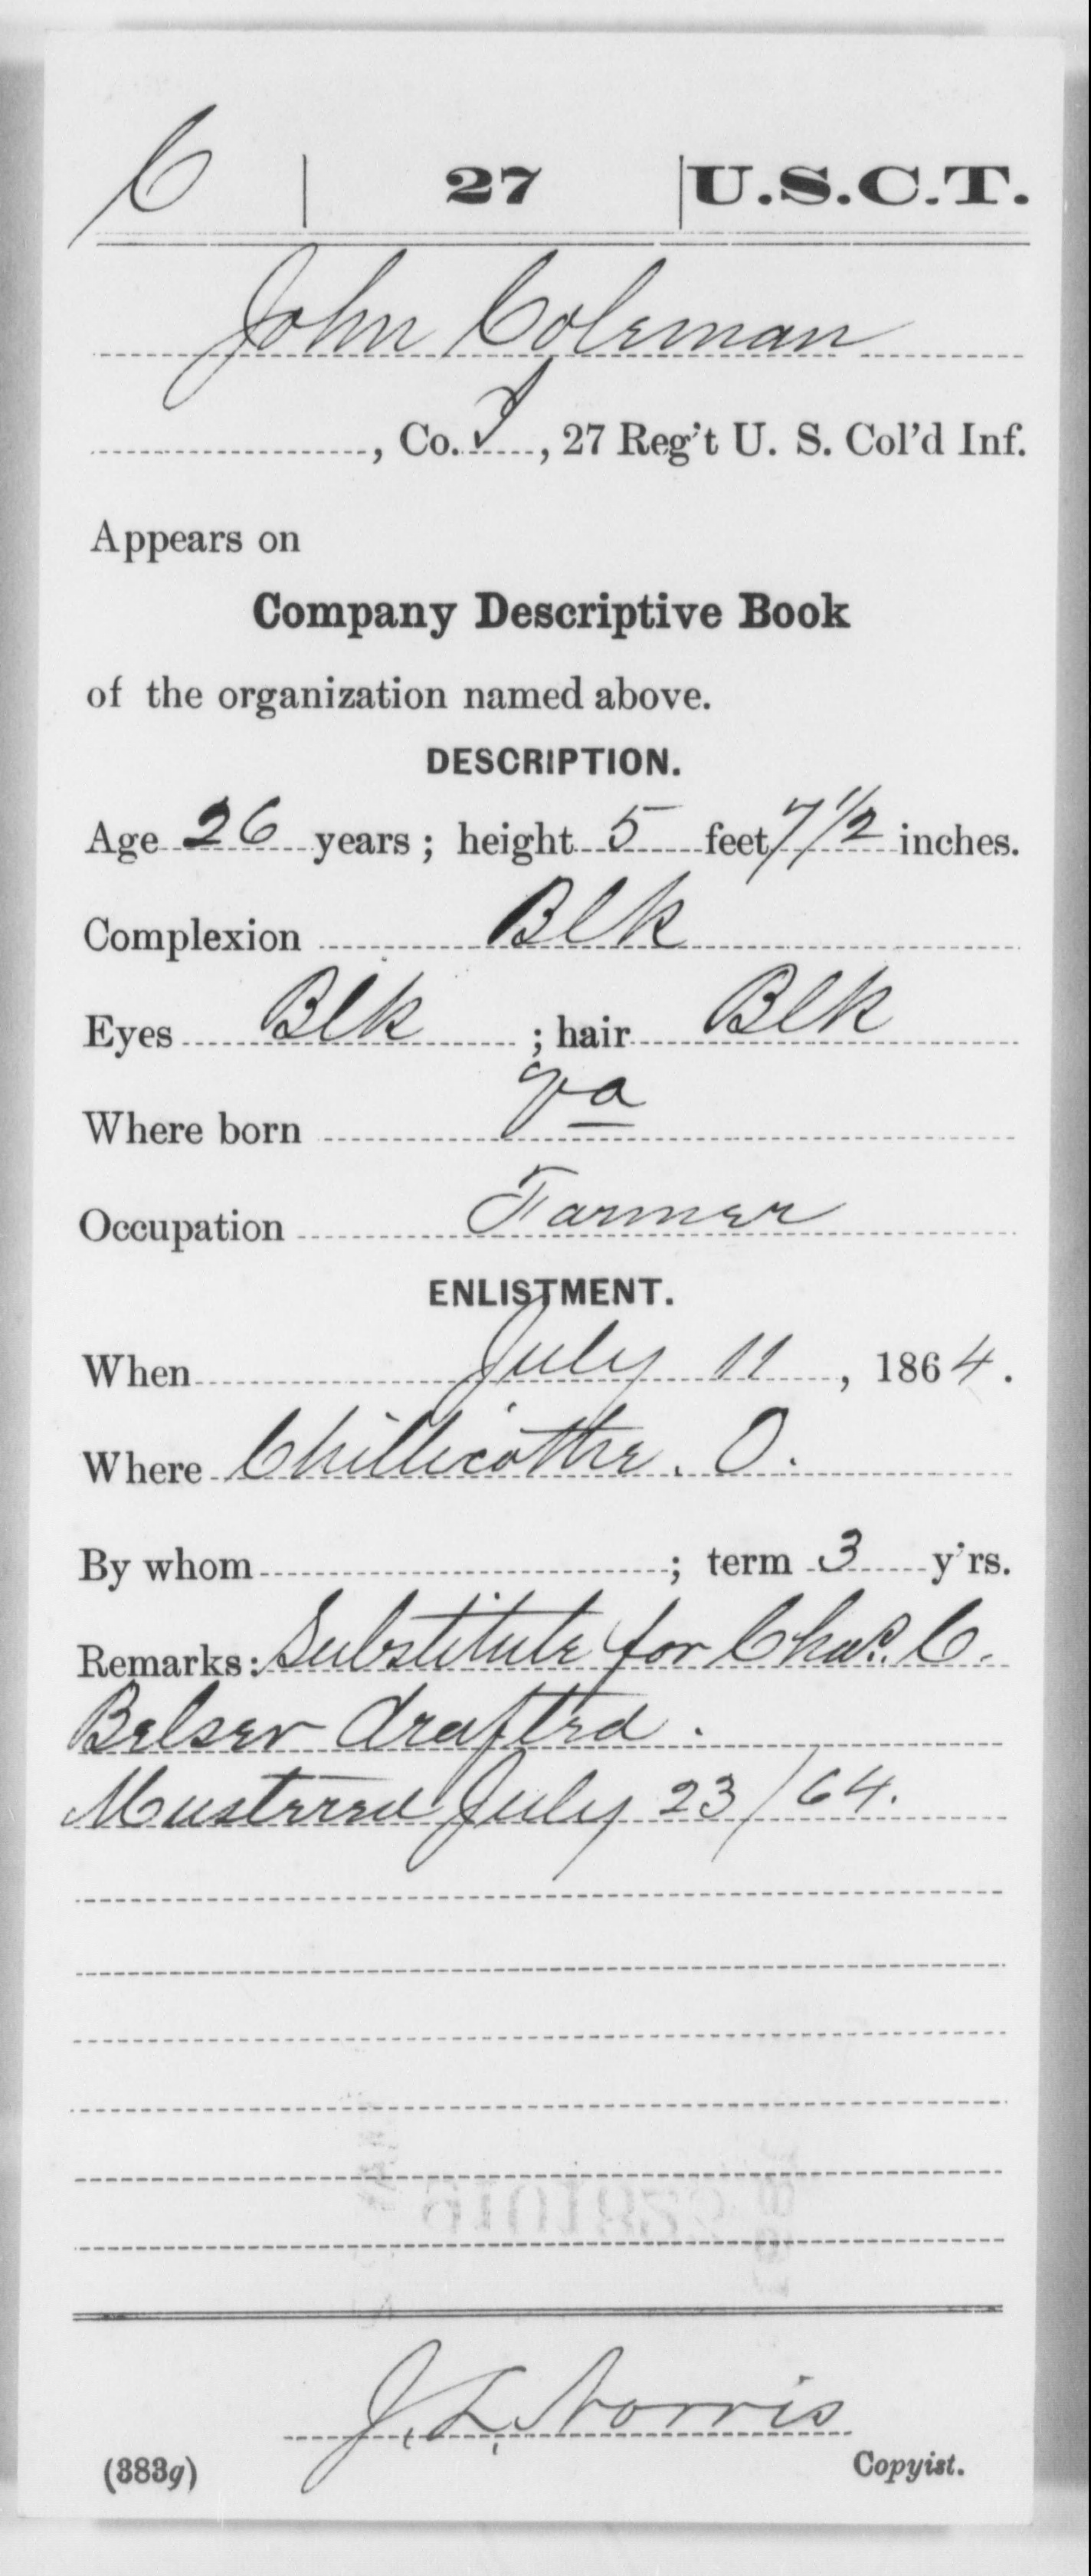 C | 27 | U.S.C.T.
John Coleman
, Co. I, 27 Reg't U. S. Col'd Inf.
Appears on
Company Descriptive Book
of the organization named above.
DESCRIPTION.
Age 26 years; height 5 feet 7 1/2 inches.
Complexion Blk
Eyes Blk ; hair Blk
Where born Va
Occupation Farmer
ENLISTMENT.
When July 11, 1864.
Where Chillicothe. O.
By whom ; term 3 y'rs.
Remarks: Substitute for Chas. C.
Belser drafted.
Mustered July 23/64.
J. L. Norris
(383g) Copyist.